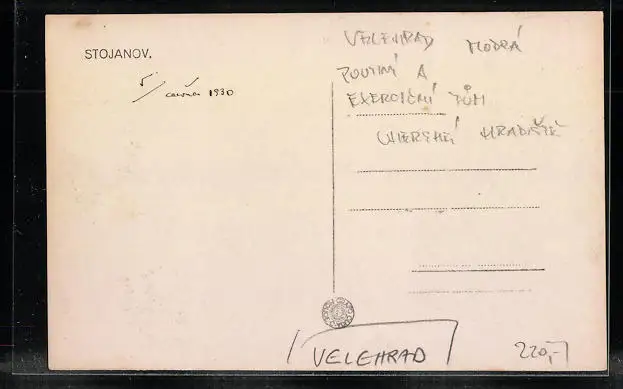 STOJANOV.
5/ června 1930
VELEHRAD MODRÁ
POUTNÍ A
EXERCIČNÍ DŮM
UHERSKÉ HRADIŠTĚ
VELEHRAD
220,-